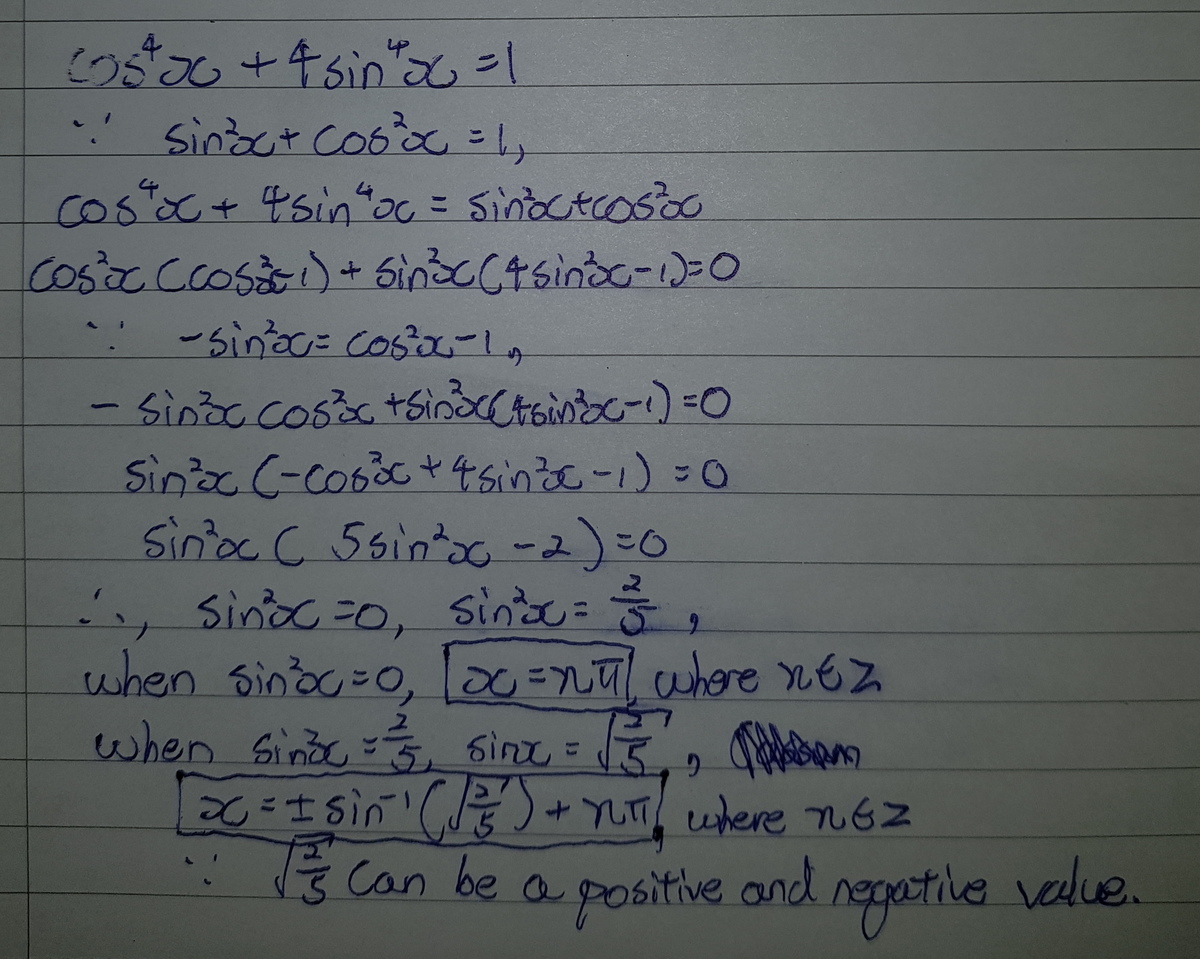 cos⁴x + 4sin⁴x = 1
∵ sin²x + cos²x = 1,
cos⁴x + 4sin⁴x = sin²x + cos²x
cos²x (cos²x - 1) + sin²x (4sin²x - 1) = 0
∵ -sin²x = cos²x - 1,
- sin²x cos²x + sin²x (4sin²x - 1) = 0
sin²x (-cos²x + 4sin²x - 1) = 0
sin²x ( 5sin²x - 2 ) = 0
∴, sin²x = 0, sin²x = 2/5,
when sin²x = 0, x = nπ, where n ∈ Z
when sin²x = 2/5, sinx = √(2/5),
x = ± sin⁻¹(√(2/5)) + nπ, where n ∈ Z
∵ √(2/5) can be a positive and negative value.